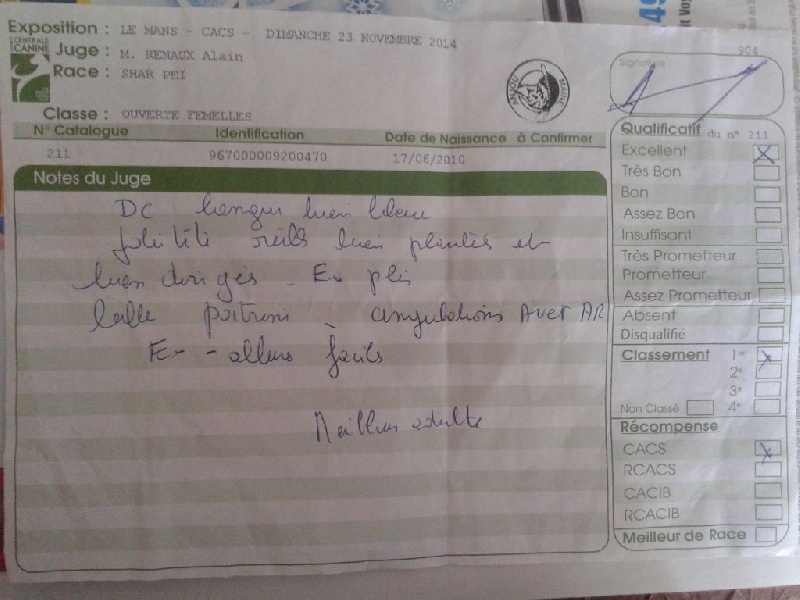 Exposition : LE MANS - CACS - DIMANCHE 23 NOVEMBRE 2014
CENTRALE CANINE
Juge : M. RENAUX Alain
Race : SHAR PEI
904
Signature
ANJOU MAINE
Classe : OUVERTE FEMELLES
N° Catalogue Identification Date de Naissance à Confirmer
211 967000009200470 17/06/2010
Notes du Juge
DC langue bien bleue
jolie tête oreilles bien plantées et
bien dirigés - Ex plis
belle poitrine - angulations Avet AR
Ex - allures faciles
Meilleur adulte
Qualificatif du n° 211
Excellent X
Très Bon
Bon
Assez Bon
Insuffisant
Très Prometteur
Prometteur
Assez Prometteur
Absent
Disqualifié
Classement 1er X
2e
3e
Non Classé 4e
Récompense
CACS X
RCACS
CACIB
RCACIB
Meilleur de Race